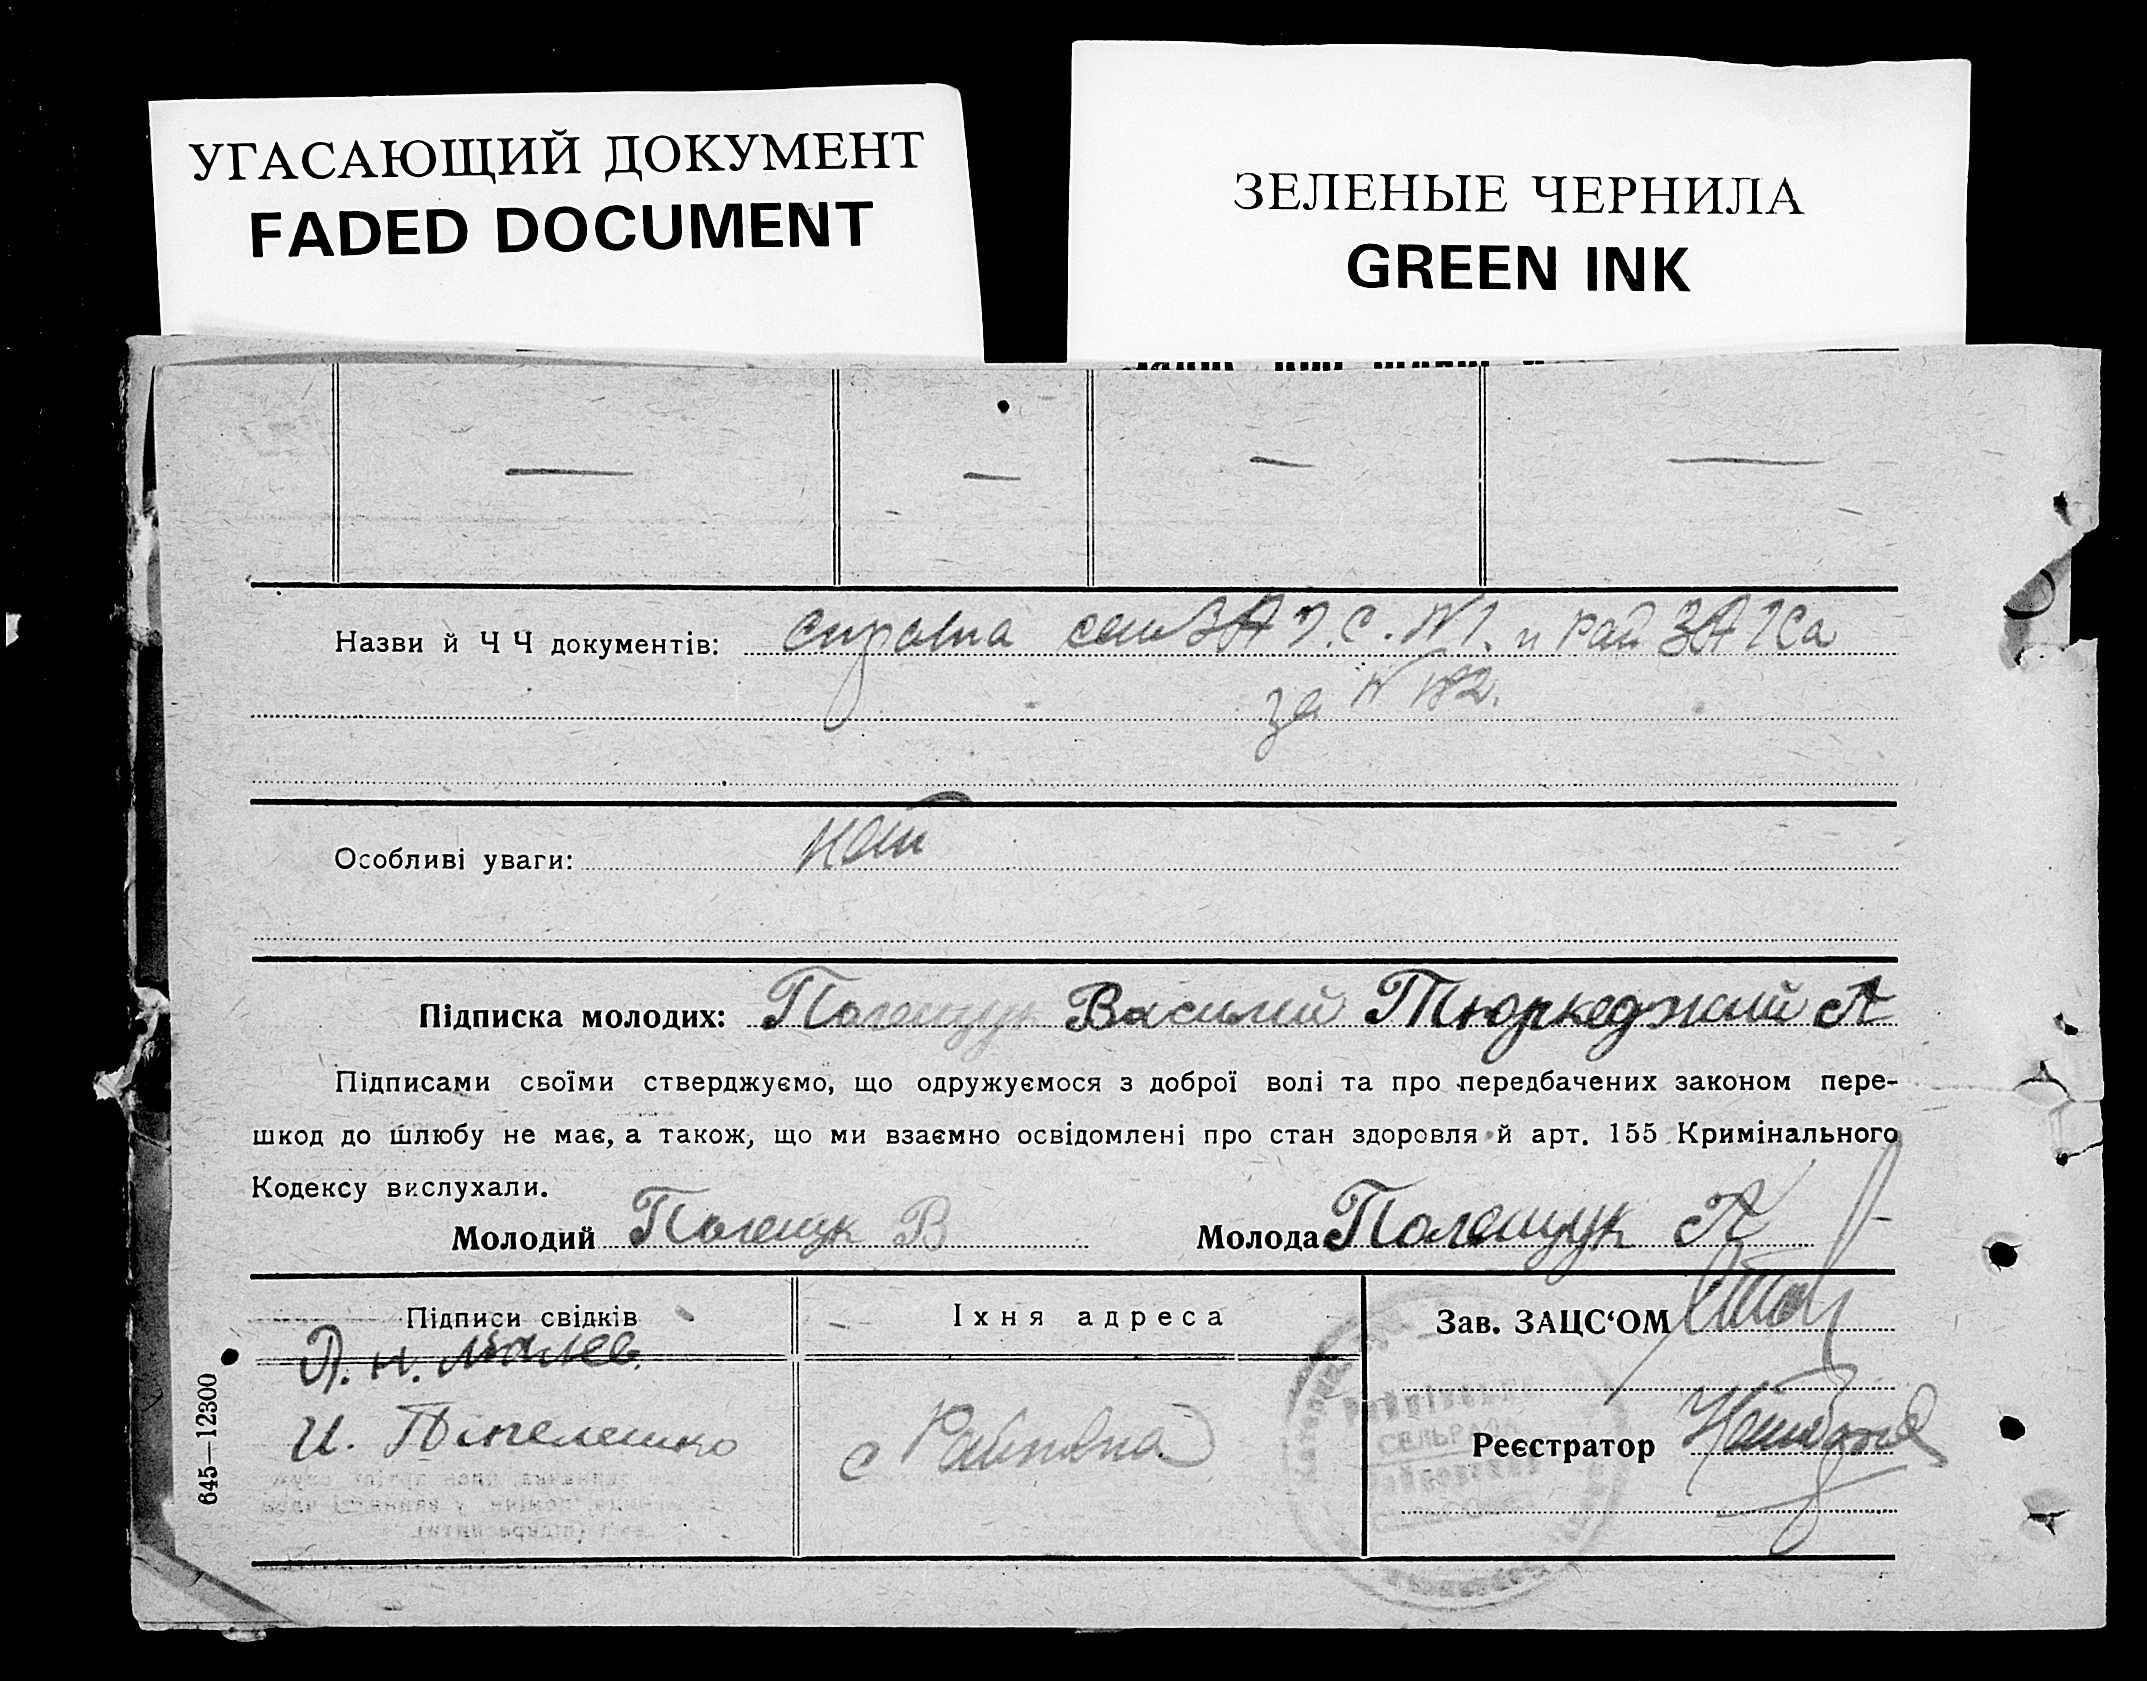 УГАСАЮЩИЙ ДОКУМЕНТ
FADED DOCUMENT
ЗЕЛЕНЫЕ ЧЕРНИЛА
GREEN INK
Назви й ЧЧ документів: справка ЗАГ.С. №1. и рай ЗАГСа
за №
Особливі уваги: нет
Підписка молодих: Полещук Василий Тюркеджий А
Підписами своїми стверджуємо, що одружуємося з доброї волі та про передбачених законом пере-
шкод до шлюбу не має, а також, що ми взаємно освідомлені про стан здоровля й арт. 155 Кримінального
Кодексу вислухали.
Молодий Полещук В Молода Полещук А
Підписи свідків
Іхня адреса
Зав. ЗАЦС‘ОМ
И.
с
Реєстратор
645—12300